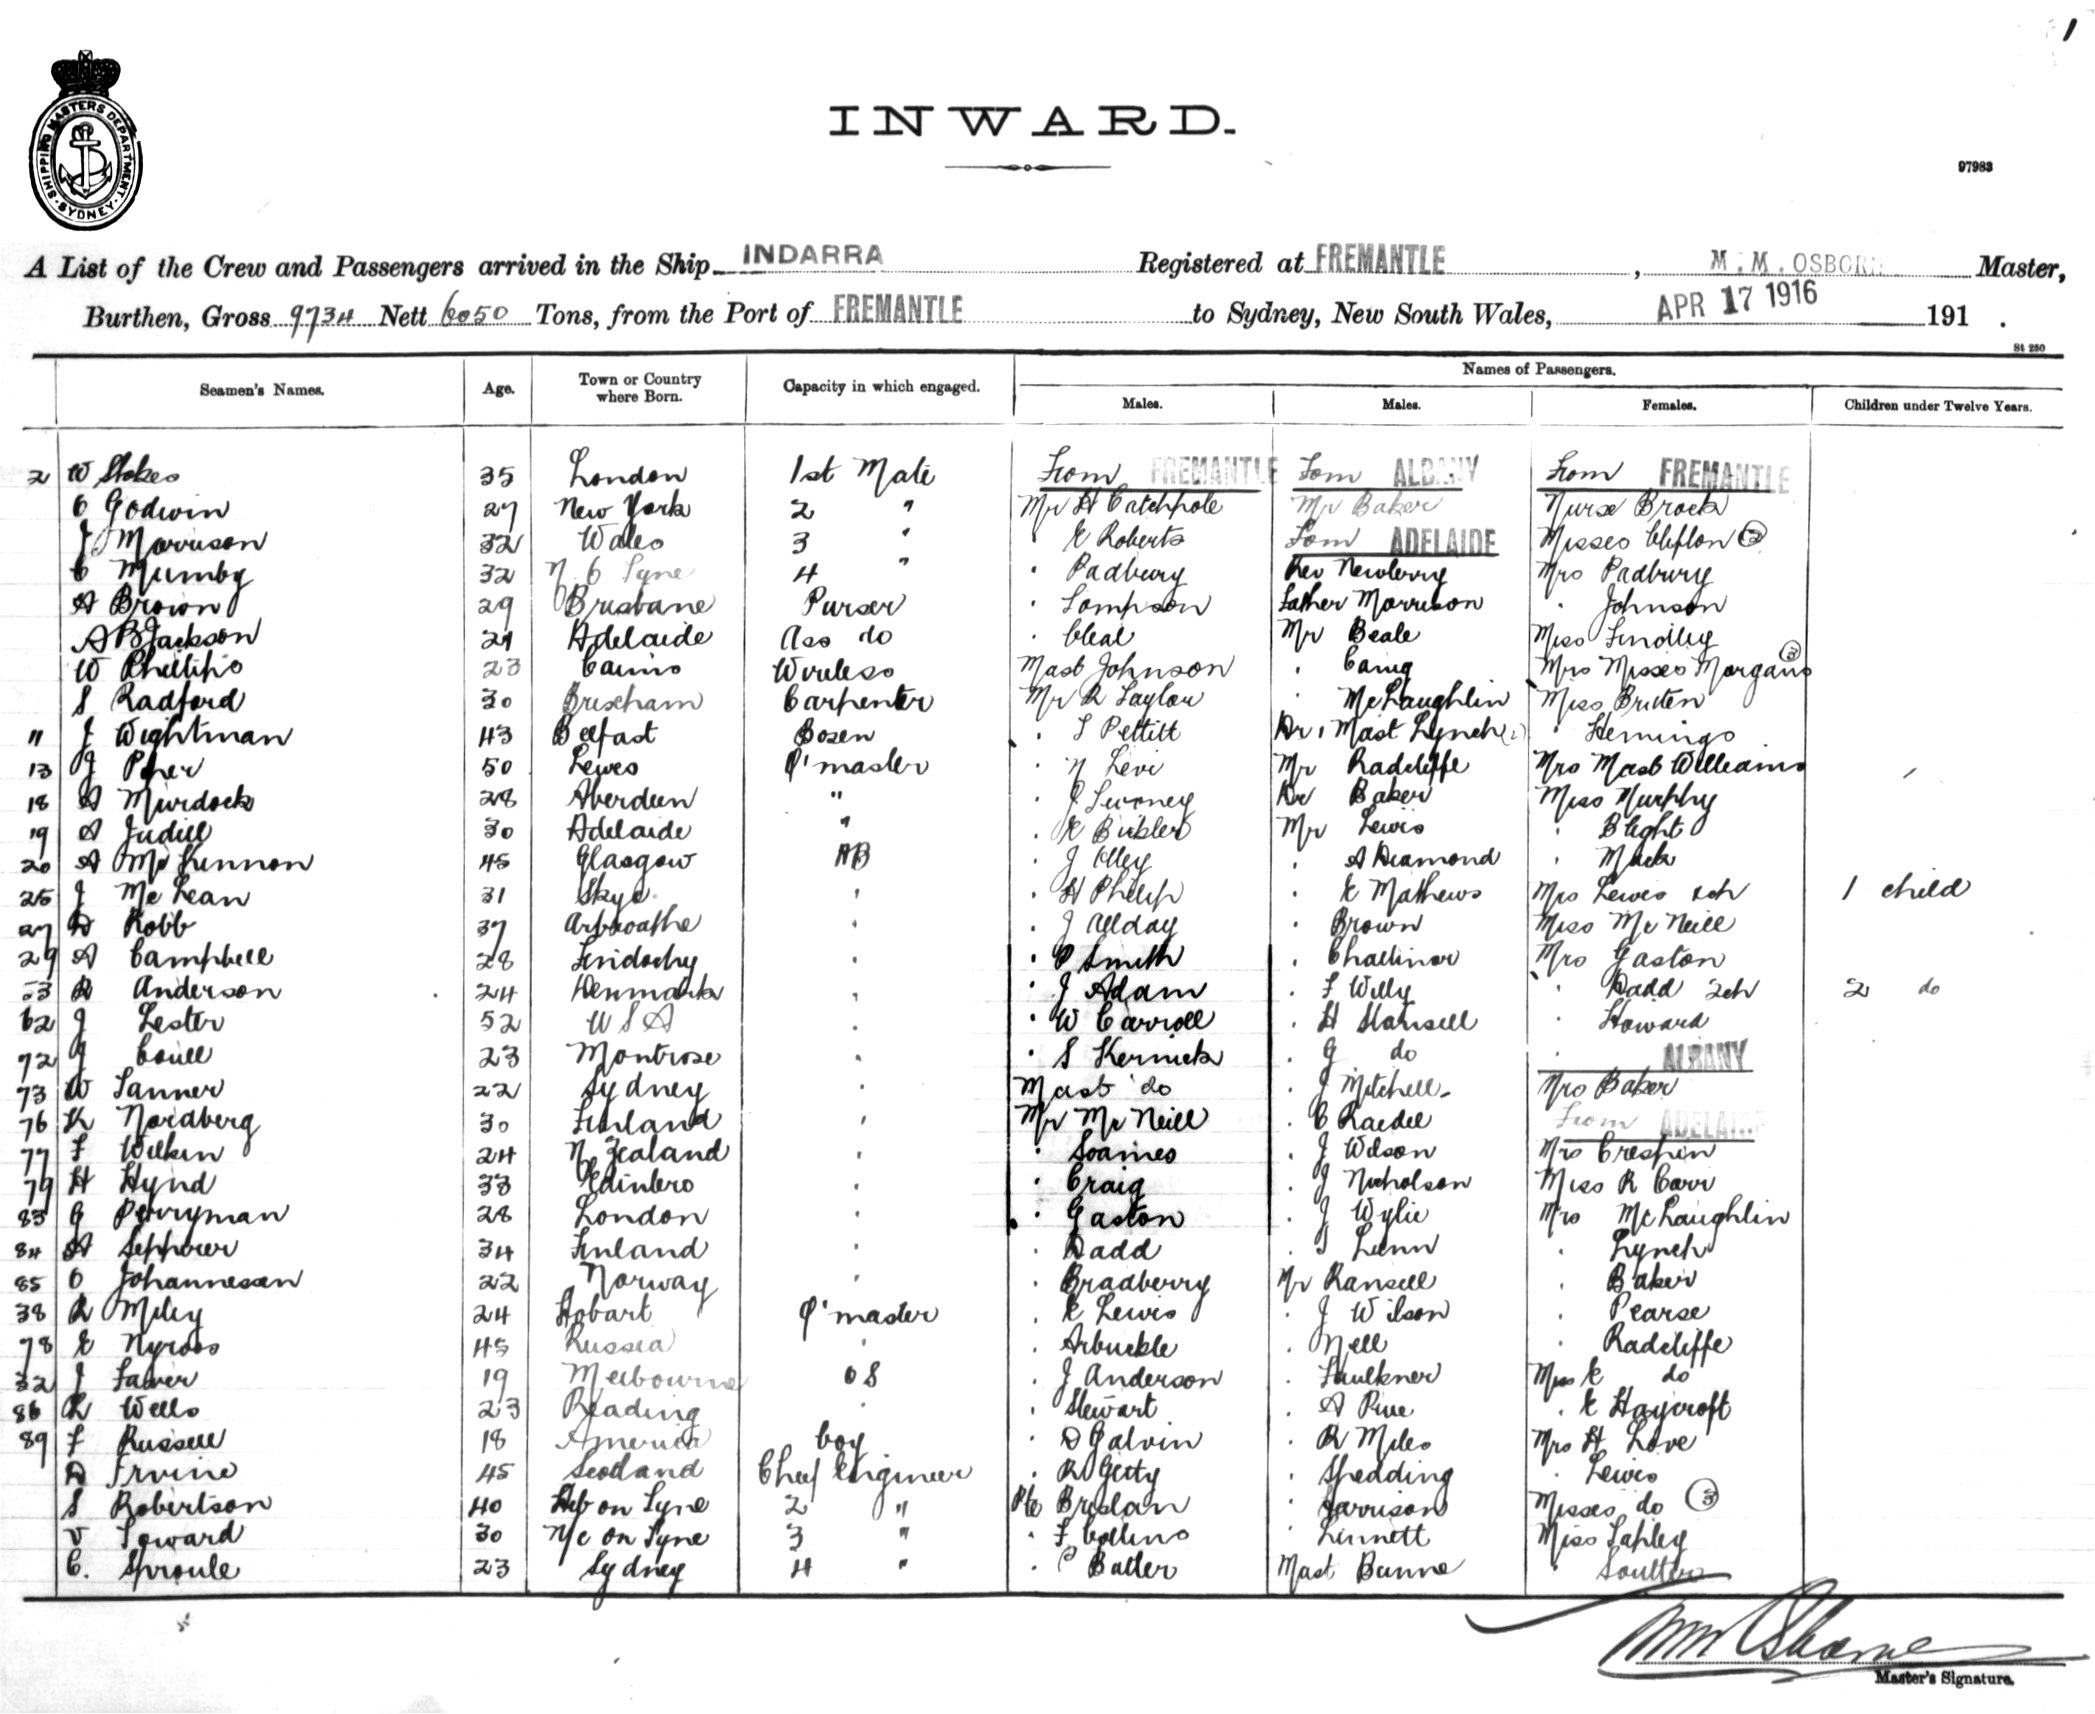 1
SHIPPING MASTERS DEPARTMENT. SYDNEY.
INWARD.
97983
A List of the Crew and Passengers arrived in the Ship INDARRA Registered at FREMANTLE, M. M. OSBORN Master,
Burthen, Gross 9734 Nett 6050 Tons, from the Port of FREMANTLE to Sydney, New South Wales, APR 17 1916 191 .
St 250
Seamen's Names. Age. Town or Country where Born. Capacity in which engaged. Names of Passengers.
Males. Males. Females. Children under Twelve Years.
2 W Stokes 35 London 1st Mate From FREMANTLE From ALBANY From FREMANTLE
C Godwin 27 New York 2 " Mr H Catchpole Mr Baker Nurse Brock
J Morrison 32 Wales 3 " " E Roberts From ADELAIDE Misses Clifton 2
C Mumby 32 N C Tyne 4 " " Padbury Rev Newberry Mrs Padbury
A Brown 29 Brisbane Purser " Tompson Father Morrison " Johnson
A B Jackson 21 Adelaide Ass do " Cleal Mr Beale Miss Findley
W Phillips 23 Cairns Wireless Mast Johnson " Craig Mrs Misses Morgans 3
S Radford 30 Brixham Carpenter Mr R Taylor " McLaughlin Miss Britten
11 J Wightman 43 Belfast Bosen " T Pettitt Dr & Mast Lynch " Flemings
13 J Piper 50 Lewes Q'master " N Levi Mr Radcliffe Mrs Mast Williams
18 A Murdock 28 Aberdeen " " J Sweeney Dr Baker Miss Murphy
19 A Judell 30 Adelaide " " E Buhler Mr Lewis " Blight
20 A McKennon 45 Glasgow AB " J Olley " A Diamond " Mack
25 J McLean 31 Skye " " H Philip " E Mathews Mrs Lewis &ch 1 child
27 D Robb 37 Arbroathe " " J Allday " Brown Miss McNeill
29 A Campbell 28 Findochy " " P Smith " Challinor Mrs Gaston
53 R Anderson 24 Denmark " " J Adam " F Willy " Dadd 2ch 2 do
62 J Lester 52 U S A " " W Carroll " H Stansell " Howard
72 J Coull 23 Montrose " " S Kernick " G do " ALBANY
73 W Tanner 22 Sydney " Mast do " J Mitchell Mrs Baker
76 K Nordberg 30 Finland " Mr McNeill " C Raedel From ADELAIDE
77 F Wilkin 24 N Zealand " " Soames " J Wilson Mrs Crespin
79 H Hynd 33 Edinboro " " Craig " J Nicholson Miss R Carr
83 G Perryman 28 London " " Gaston " J Wylie Mrs McLaughlin
84 A Sepparer 34 Finland " " Dadd " S Lunn " Lynch
85 O Johannesen 22 Norway " " Bradberry Mr Ransell " Baker
38 R Miley 24 Hobart Q'master " E Lewis " J Wilson " Pearse
78 E Nyroos 45 Russia " " Arbuckle " Nell " Radcliffe
32 J Faber 19 Melbourne OS " J Anderson " Faulkner Miss E do
86 R Wells 23 Reading " " Stewart " A Pive " E Haycroft
89 F Russell 18 America boy " D Galvin " R Miles Mrs H Love
D Irvine 45 Scotland Chief Engineer " R Getty " Spedding " Lewis
S Robertson 40 Heb on Tyne 2 " Pte Breslan " Garrison Misses do 3
V Toward 30 N/c on Tyne 3 " " F Collins " Linnett Miss Tapley
C. Sproule 23 Sydney 4 " " P Butler Mast Bunne " Soulter
M M Osborne
Master's Signature.